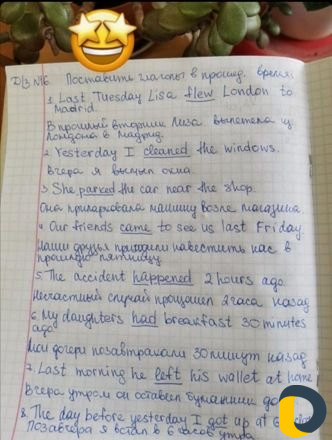 Д/З №6. Поставить глаголы в прошед. время.
1. Last Tuesday Lisa flew London to
Madrid.
В прошлый вторник Лиза вылетела из
Лондона в Мадрид.
2. Yesterday I cleaned the windows.
Вчера я вымыл окна.
3. She parked the car near the shop.
Она припарковала машину возле магазина.
4. Our friends came to see us last Friday.
Наши друзья приходили навестить нас в
прошлую пятницу.
5. The accident happened 2 hours ago.
Несчастный случай произошел 2 часа назад
6. My daughters had breakfast 30 minutes
ago
Мои дочери позавтракали 30 минут назад
7. Last morning he left his wallet at home
Вчера утром он оставил бумажник
8. The day before yesterday I got up at 6
Позавчера я встал в 6 часов утра